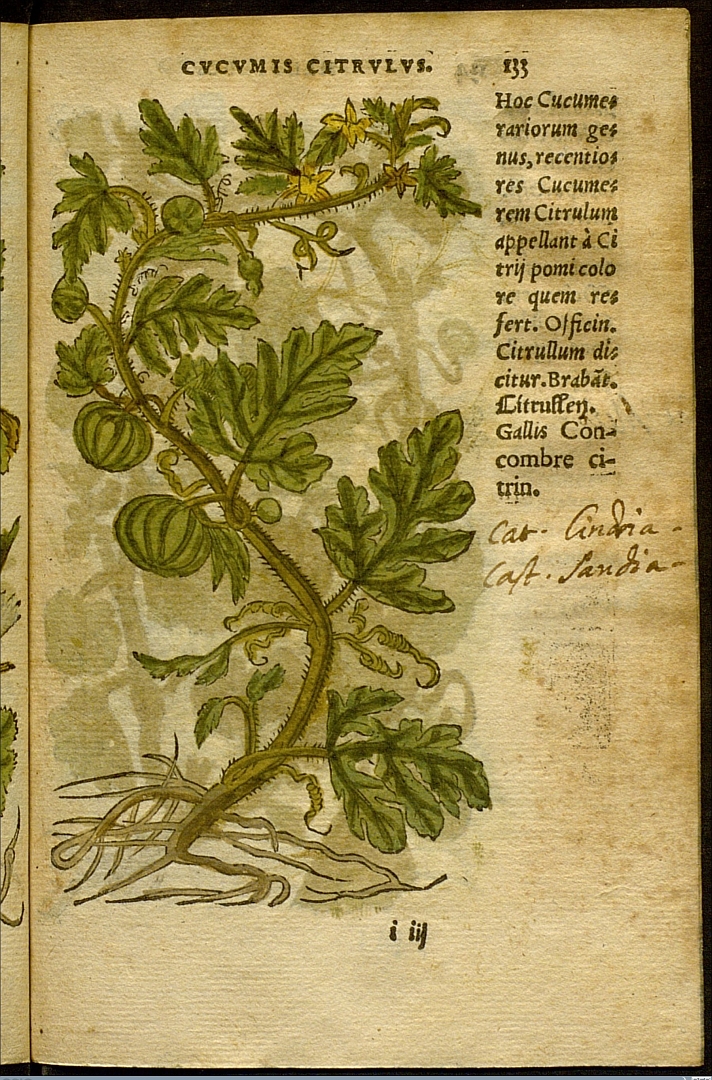 CVCVMIS CITRVLVS. 133
Hoc Cucume⸗
rariorum ge⸗
nus, recentio⸗
res Cucume⸗
rem Citrulum
appellant à Ci
trij pomi colo
re quem re⸗
fert. Officin.
Citrullum di⸗
citur. Brabāt.
Citrullen.
Gallis Con-
combre ci-
trin.
Cat. Cindria -
Cast. Sandia -
i iij